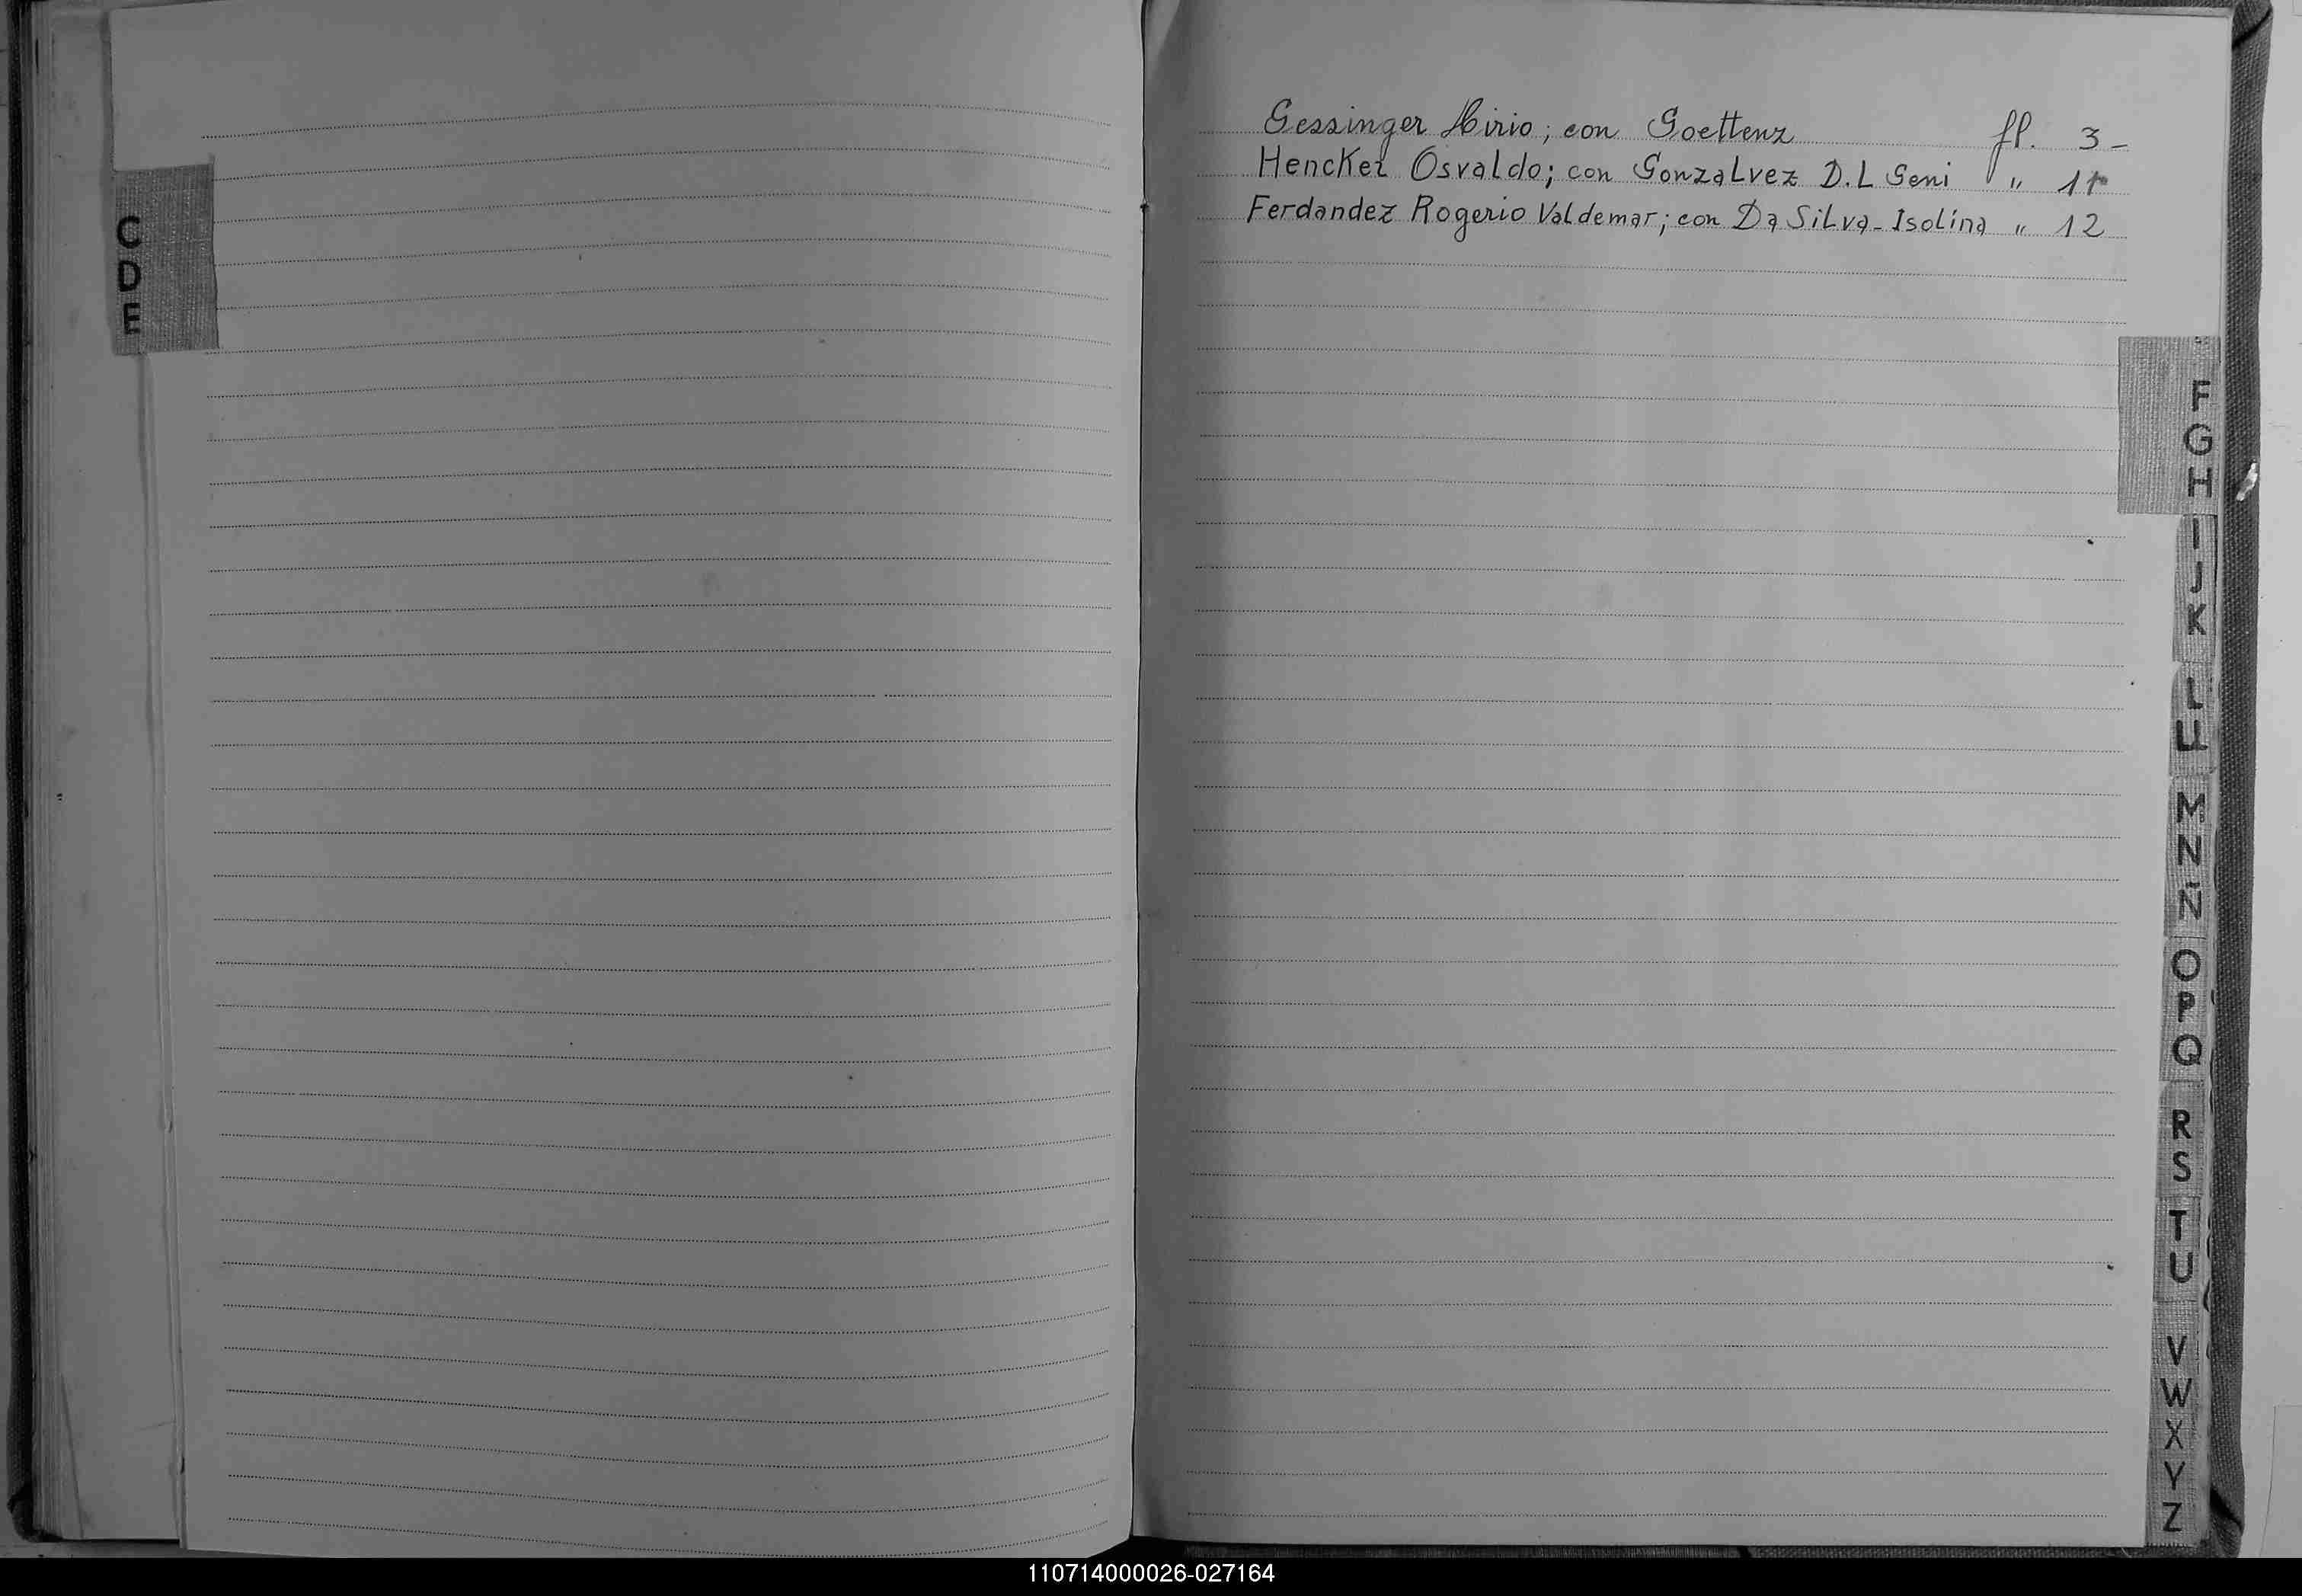 Gessinger Hirio; con Goettenz fl. 3-
Henckel Osvaldo; con Gonzalvez D.L Geni " 11
Ferdandez Rogerio Valdemar; con Da Silva-Isolina " 12
C
D
E
F
G
H
I
J
K
L
LL
M
N
Ñ
O
P
Q
R
S
T
U
V
W
X
Y
Z
110714000026-027164